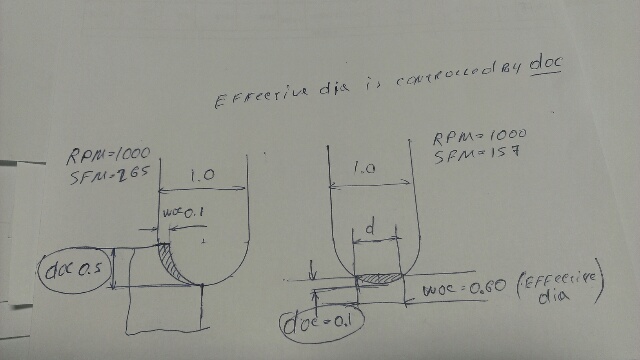 EFFective dia is controlled By doc
RPM=1000
SFM=265
1.0
woc 0.1
doc 0.5
RPM=1000
SFM=157
1.0
d
doc=0.1
woc=0.60 (EFFective
dia)